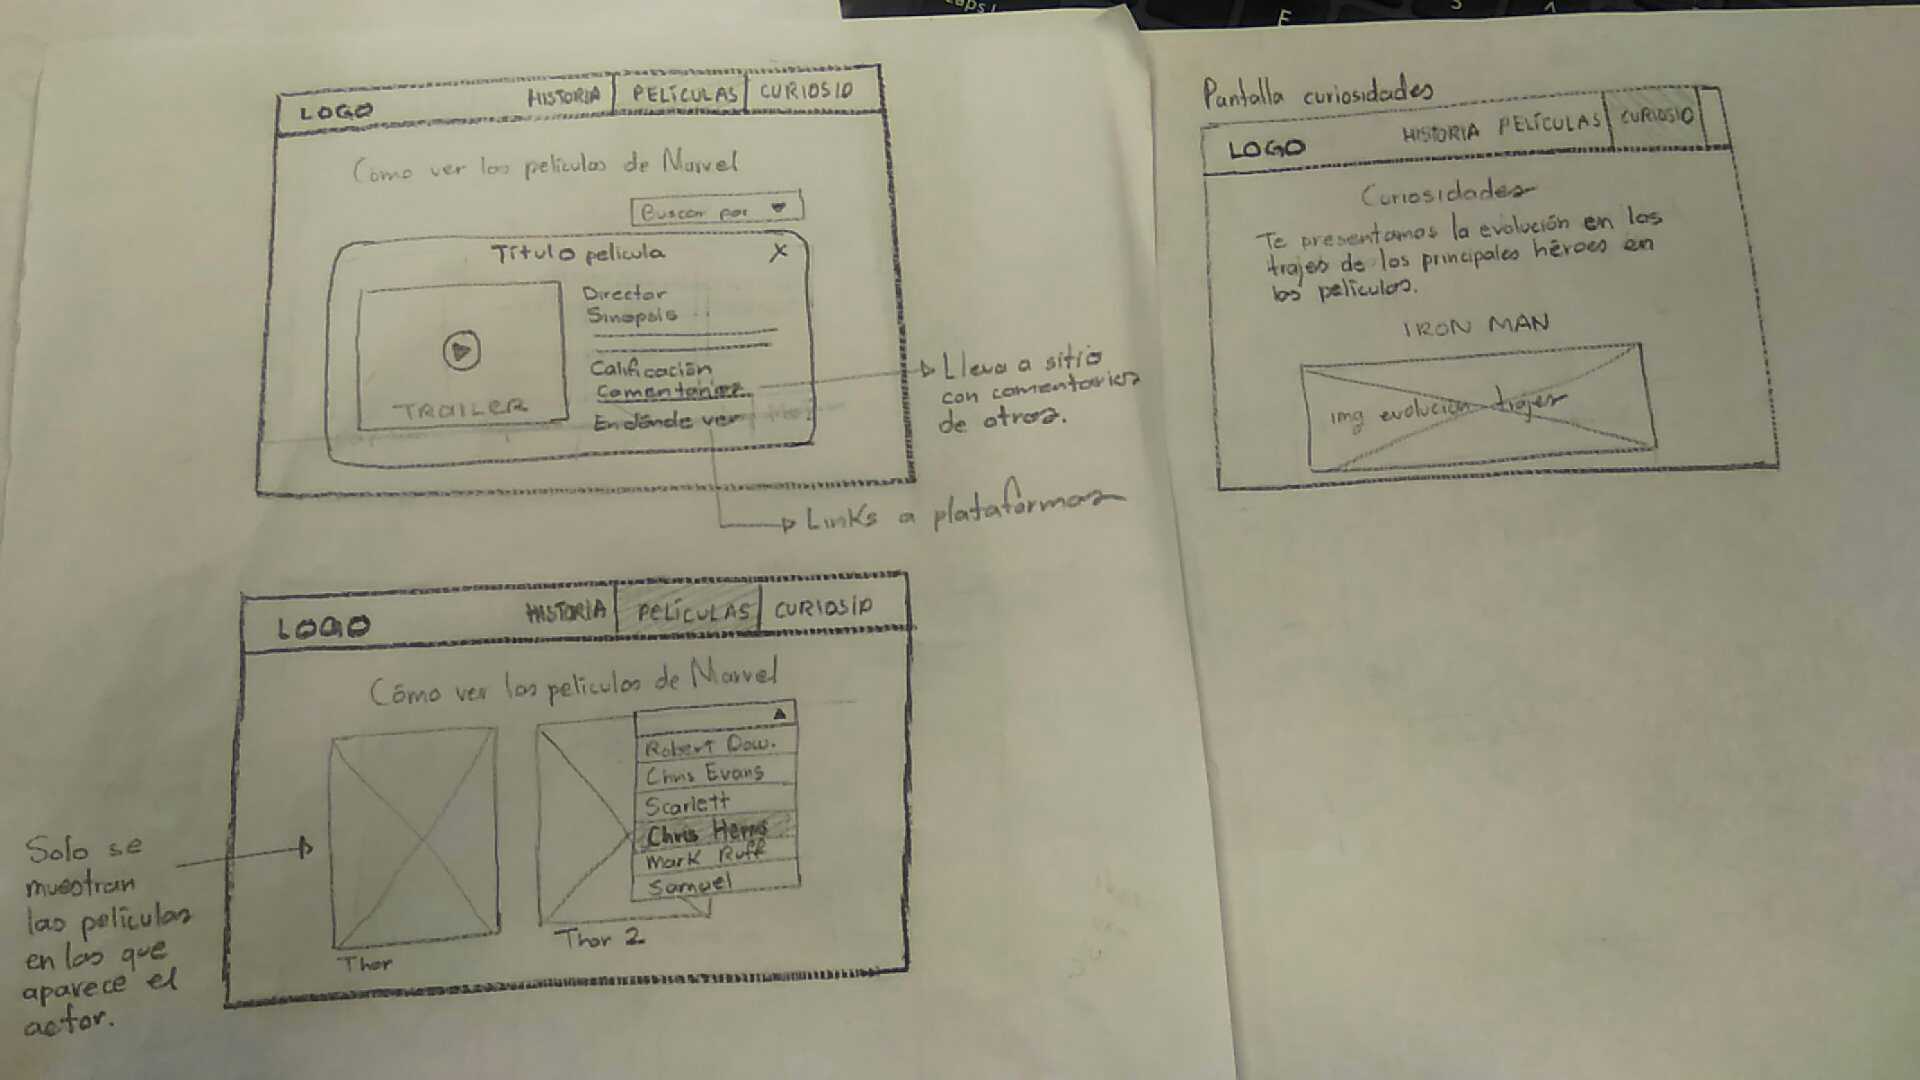 LOGO HISTORIA PELÍCULAS CURIOSID
Como ver las películas de Marvel
Buscar por
Título película X
Director
Sinopsis
Calificación
Comentarios
En dónde ver
TRAILER
Lleva a sitio
con comentarios
de otros.
Links a plataformas
LOGO HISTORIA PELÍCULAS CURIOSID
Cómo ver las películas de Marvel
Robert Dow.
Chris Evans
Scarlett
Chris Hems
Mark Ruff
Samuel
Thor
Thor 2
Solo se
muestran
las películas
en las que
aparece el
actor.
Pantalla curiosidades
LOGO HISTORIA PELÍCULAS CURIOSID
Curiosidades
Te presentamos la evolución en los
trajes de los principales héroes en
las películas.
IRON MAN
img evolución trajes